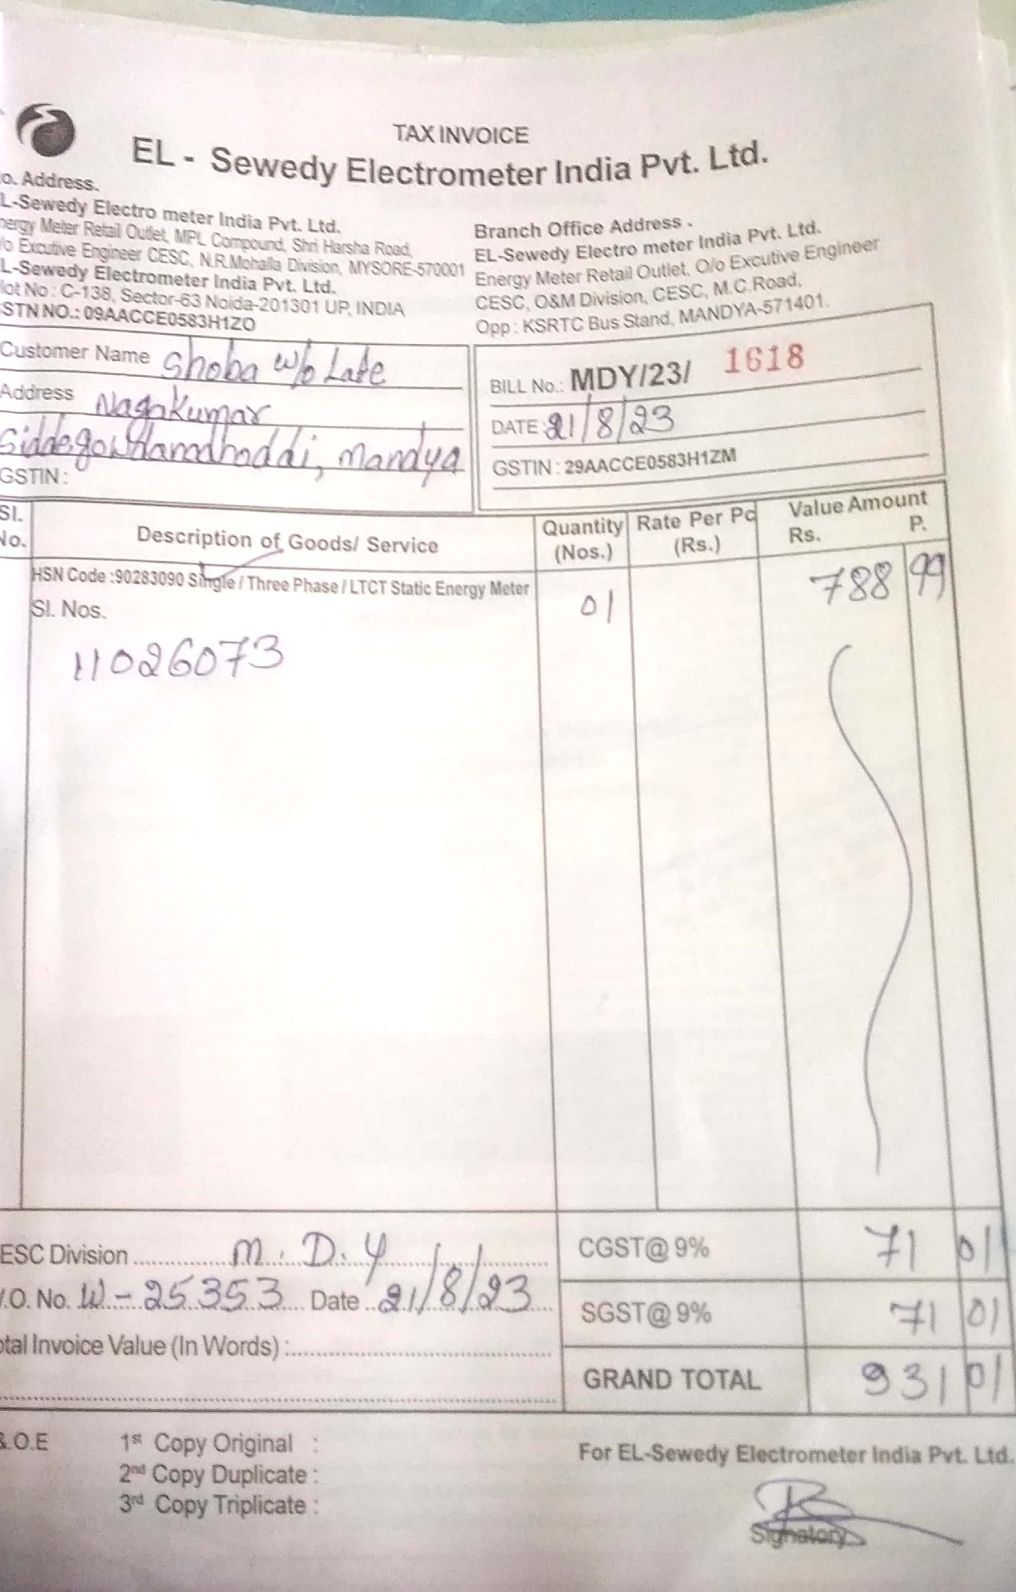 TAX INVOICE
EL - Sewedy Electrometer India Pvt. Ltd.
o. Address.
L-Sewedy Electro meter India Pvt. Ltd.
nergy Meter Retail Outlet, MPL Compound, Shri Harsha Road,
/o Excutive Engineer CESC, N.R.Mohalla Division, MYSORE-570001
L-Sewedy Electrometer India Pvt. Ltd.
lot No : C-138, Sector-63 Noida-201301 UP, INDIA
STN NO.: 09AACCE0583H1ZO
Branch Office Address .
EL-Sewedy Electro meter India Pvt. Ltd.
Energy Meter Retail Outlet, O/o Excutive Engineer
CESC, O&M Division, CESC, M.C.Road,
Opp : KSRTC Bus Stand, MANDYA-571401.
Customer Name Shoba w/o Late
Address Nagakumar
Siddegowdanadhoddi, Mandya
GSTIN :
BILL No.: MDY/23/ 1618
DATE 21/8/23
GSTIN : 29AACCE0583H1ZM
Sl. No. Description of Goods/ Service Quantity (Nos.) Rate Per Pc (Rs.) Value Amount Rs. P.
HSN Code :90283090 Single / Three Phase / LTCT Static Energy Meter 01 788 99
Sl. Nos.
11026073
ESC Division M. D. Y
.O. No. W-25353 Date 21/8/23
otal Invoice Value (In Words) :
CGST@ 9% 71 01
SGST@ 9% 71 01
GRAND TOTAL 931 01
&.O.E
1st Copy Original :
2nd Copy Duplicate :
3rd Copy Triplicate :
For EL-Sewedy Electrometer India Pvt. Ltd.
Signatory